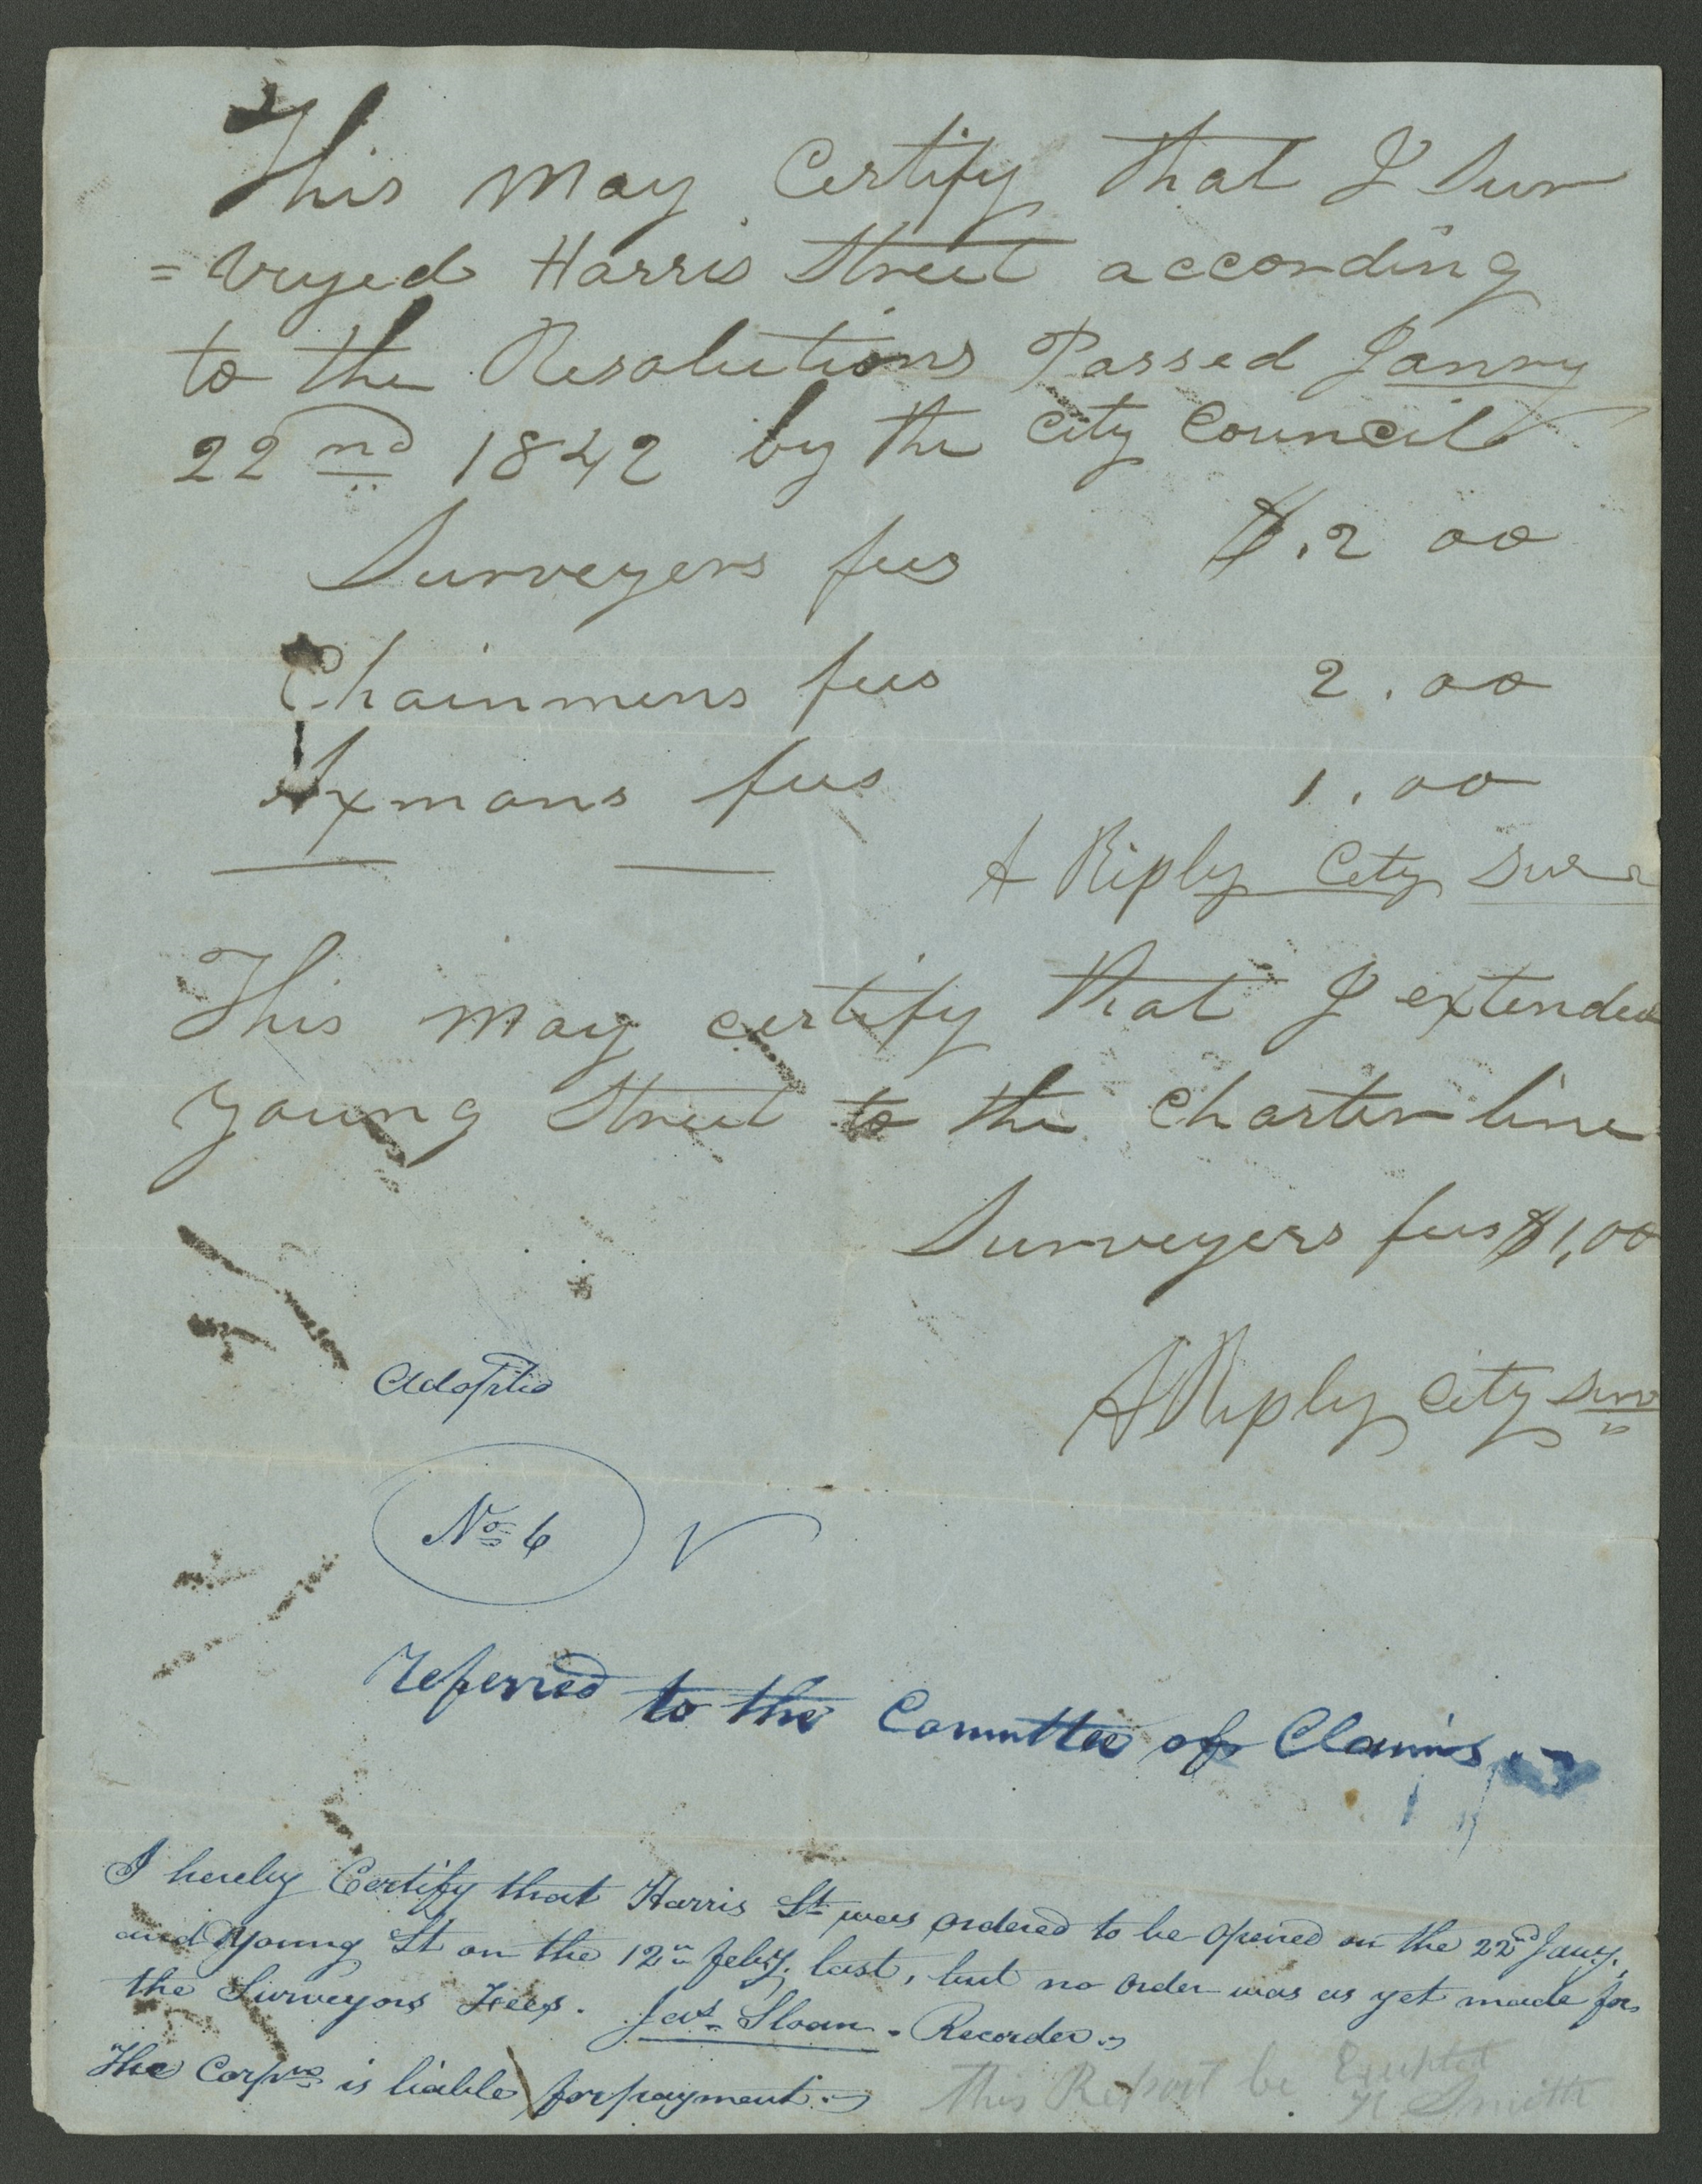 This may Certify that I Sur
=veyed Harris Street according
to the Resolutions Passed Janry
22nd 1842 by the City Council
Surveyers fees $.2 00
Chainmens fees 2.00
Axmans fees 1.00
A Riply City Sur
This may certify that I extended
young Street to the Charter line
Surveyers fees $1,00
A Riply City Sur
Adopted
No 6
referred to the Committee of Claims
I hereby Certify that Harris St was ordered to be opened on the 22nd Jany.
and Young St on the 12th feby. last, but no order was as yet made for
the Surveyors Fees. Jas Sloan - Recorder
The Corpn is liable for payment
This Report be
Smith